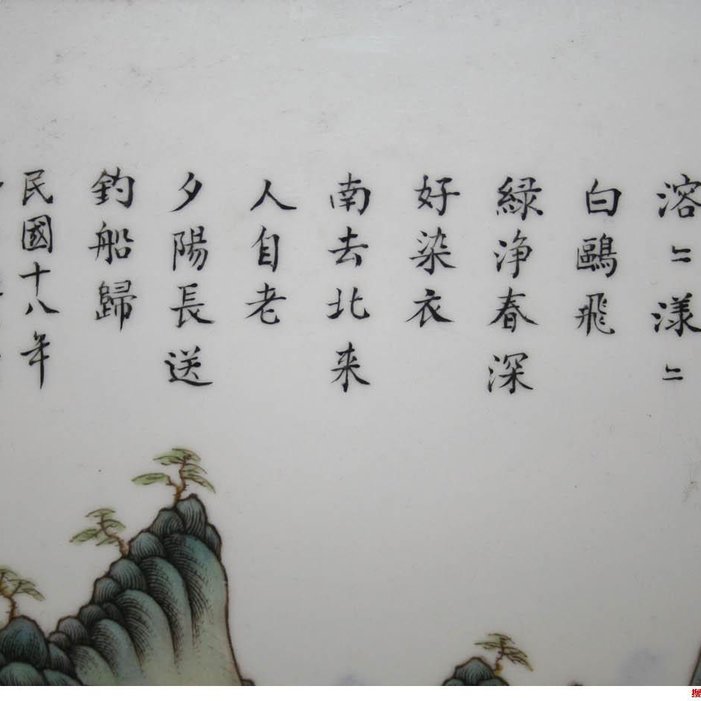 溶〻漾〻
白鷗飛
緑浄春深
好染衣
南去北来
人自老
夕陽長送
釣船歸
民國十八年